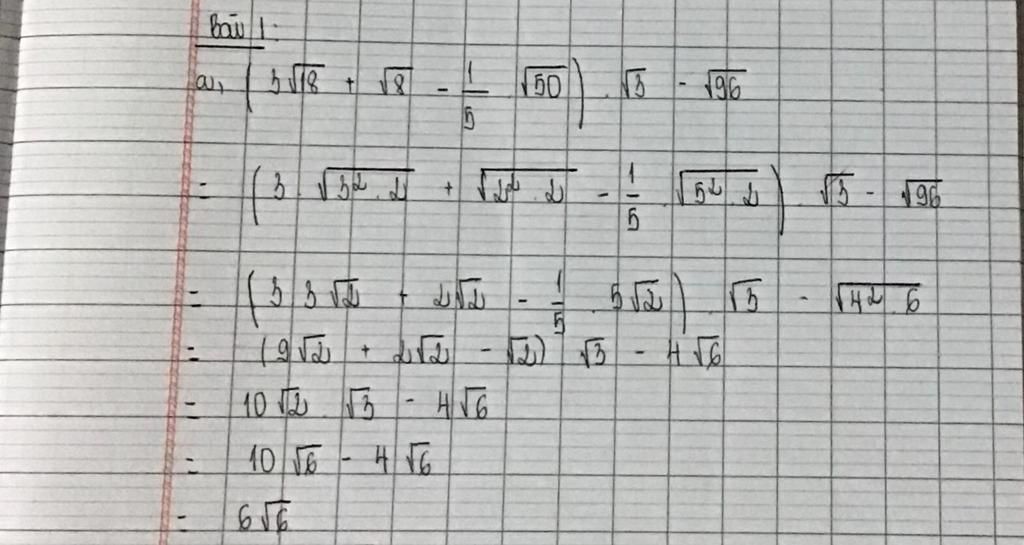 Bài 1:
a, (3√18 + √8 - 1/5 √50) . √3 - √96
= (3 . √(3² . 2) + √(2² . 2) - 1/5 . √(5² . 2)) . √3 - √96
= (3 3√2 + 2√2 - 1/5 . 5√2) √3 - √(4² . 6)
= (9√2 + 2√2 - √2) √3 - 4√6
= 10√2 . √3 - 4√6
= 10√6 - 4√6
= 6√6